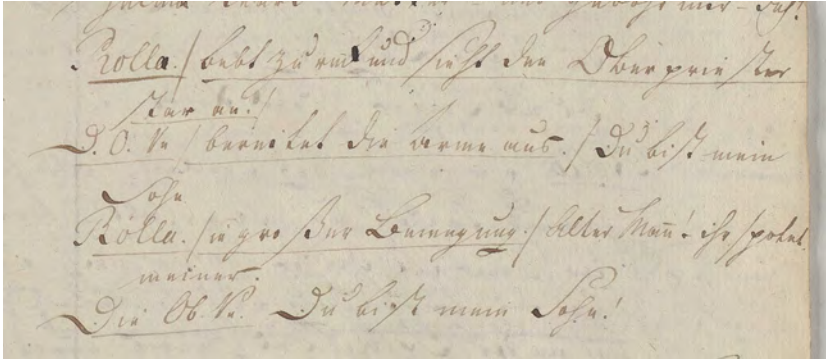 Rolla. / bebt zurück und sieht den Oberpriester
starr an. /
D. O. Pr. / breitet die Arme aus. / Du bist mein
Sohn
Rolla. / in großer Bewegung. / Alter Mann! ihr spotet
meiner.
Die Ob. Pr. Du bist mein Sohn!